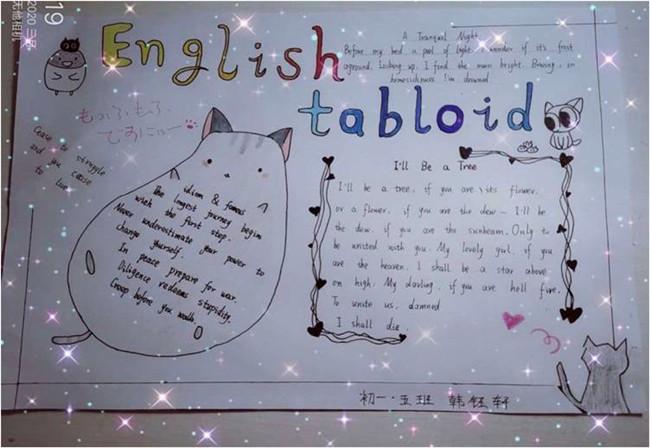 19
2020
English
tabloid
A Tranquil Night
Before my bed a pool of light wonder if it's frost
aground. Looking up, I find the moon bright. Bowing, in
homesickness I'm drowned
Cease to struggle
and you cease
to live
idiom & famous
The longest journey begin
with the first step.
Never underestimate your power to
change yourself.
In peace prepare for war.
Diligence redeems stupidity.
Creep before you walk.
I'll Be a Tree
I'll be a tree, if you are its flower.
or a flower, if you are the dew - I'll be
the dew, if you are the sunbeam. Only to
be united with you. My lovely girl, if you
are the heaven, I shall be a star above
on high. My darling, if you are hell fire,
To unite us, damned
I shall die.
初一·五班 韩钰轩